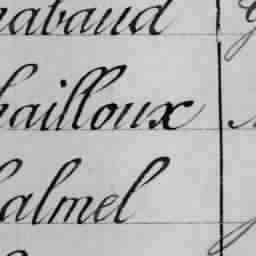 abaud
hailloux
almel